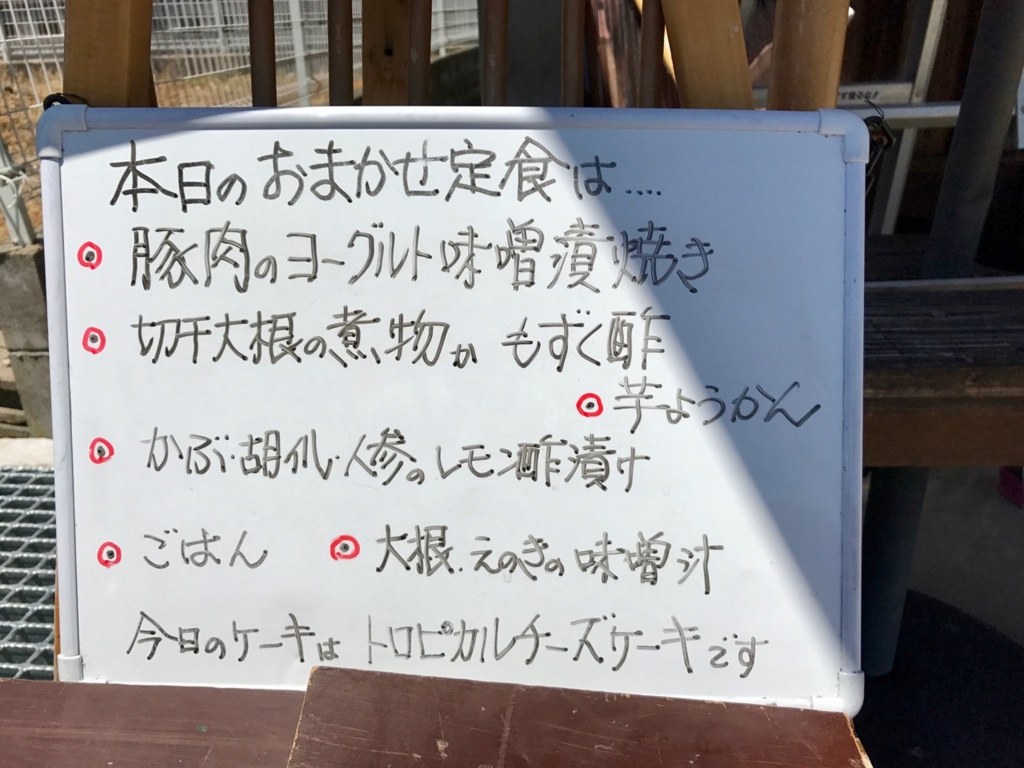 本日のおまかせ定食は....
豚肉のヨーグルト味噌漬焼き
切干大根の煮物か もずく酢
芋ようかん
かぶ・胡瓜・人参のレモン酢漬け
ごはん 大根・えのきの味噌汁
今日のケーキは トロピカルチーズケーキです